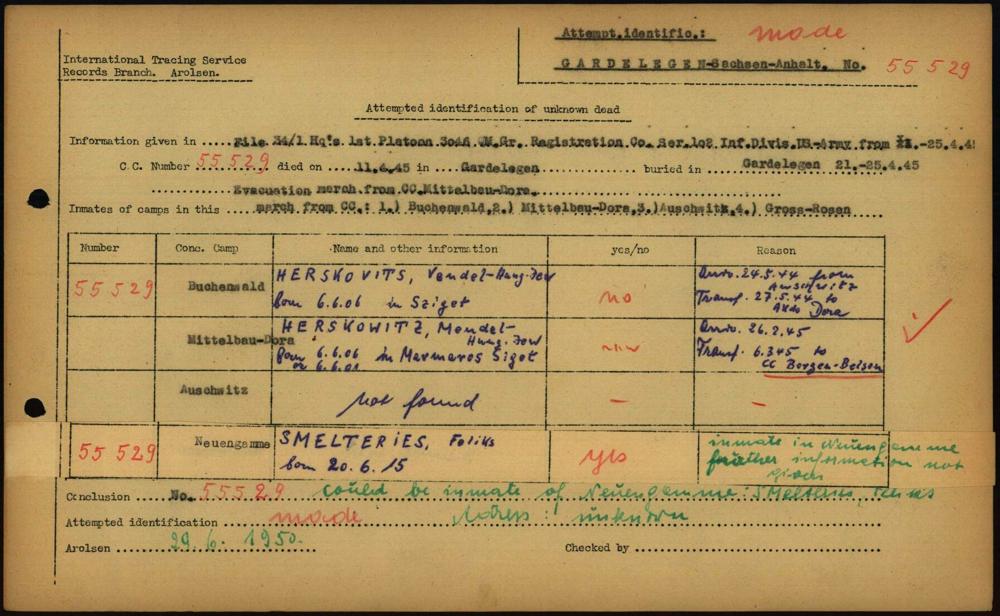 Attempt.identific.: made
International Tracing Service
Records Branch. Arolsen.
GARDELEGEN-Sachsen-Anhalt. No. 55 529
Attempted identification of unknown dead
Information given in ..... File 34/1 Hq's 1st Platoon 3046 QM.Gr. Ragistration Co. Ser.102 Inf.Divis.US-Army from 21.-25.4.4
C.C. Number 55 529 died on ... 11.4.45 in ... Gardelegen ... buried in ... Gardelegen 21.-25.4.45
Evacuation march from CC Mittelbau-Dora.
Inmates of camps in this .... march from CC.: 1.) Buchenwald,2.) Mittelbau-Dora,3.)Auschwitz,4.) Gross-Rosen
Number Conc. Camp Name and other information yes/no Reason
55 529 Buchenwald HERSKOVITS, Vendel-Hung.Jew no Arriv. 24.5.44 from
Auschwitz
born 6.6.06 in Sziget Transf. 27.5.44 to
Akdo Dora
Mittelbau-Dora HERSKOWITZ, Mendel- Arriv. 26.2.45
Hung. Jew
born 6.6.06 in Marmaros Siget Transf. 6.3.45 to
or 6.6.01 CC Bergen-Belsen
Auschwitz not found – –
55 529 Neuengamme SMELTERIES, Feliks yes inmate in Neuengamme
born 20.6.15 further information not
given
Conclusion ..... No. 55529 could be inmate of Neuengamme: Smelteries Feliks
Attempted identification ..... made ..... Adress: unknown
Arolsen ..... 29.6.1950. Checked by .....